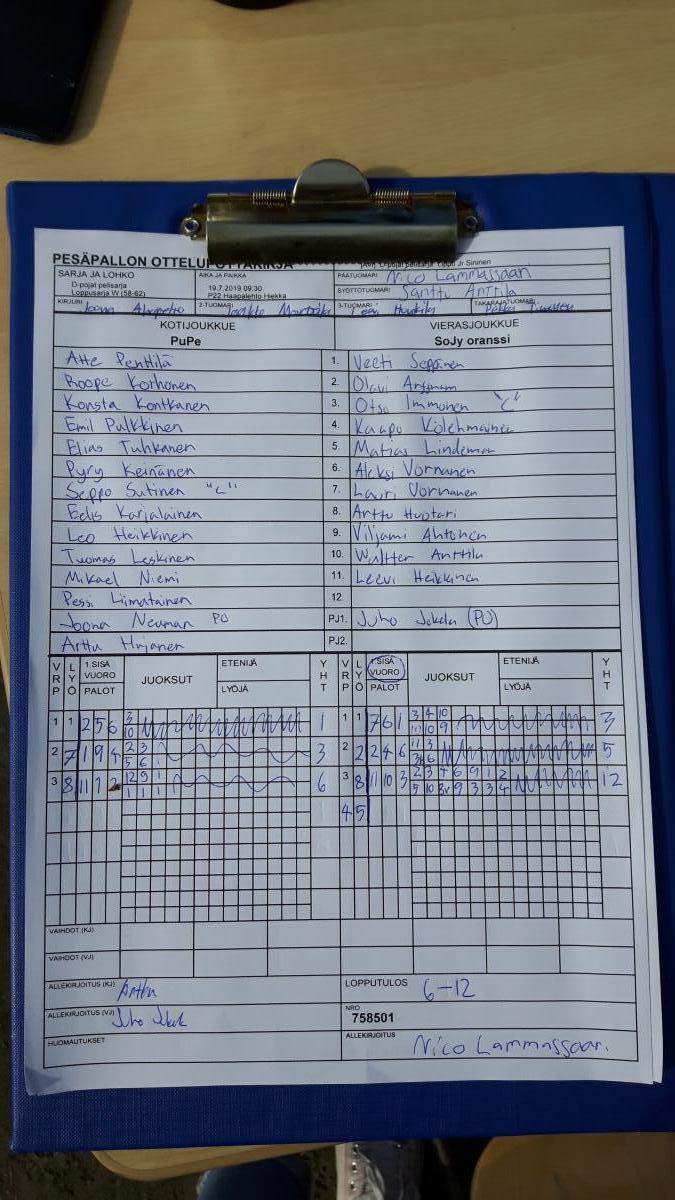 PESÄPALLON OTTELUPÖYTÄKIRJA
D-pojat pelisarja Ylpun Jr Sininen
SARJA JA LOHKO
D-pojat pelisarja
Loppusarja W (58-62)
AIKA JA PAIKKA
19.7.2019 09:30
P22 Haapalehto Hiekka
PÄÄTUOMARI Nico Lammassaari
SYÖTTÖTUOMARI Santtu Anttila
KIRJURI 2-TUOMARI 3-TUOMARI TAKARAJATUOMARI
KOTIJOUKKUE VIERASJOUKKUE
PuPe SoJy oranssi
Atte Penttilä 1. Veeti Seppänen
Roope Korhonen 2. Olavi
Konsta Kontkanen 3. Otso Immonen "C"
Emil Pulkkinen 4. Kaapo Kolehmainen
Elias Tuhkanen 5. Matias Lindeman
Pyry Keinänen 6. Aleksi Vornanen
Seppo Sutinen "C" 7. Lauri Vornanen
Eelis Karjalainen 8. Arttu Huotari
Leo Heikkinen 9. Viljami Ahtonen
Tuomas Leskinen 10. Waltter Anttila
Mikael Niemi 11. Leevi Heikkinen
Pessi Liimatainen 12.
Joona Neuman PO PJ1. Juho Jokela (PO)
Arttu Hirjanen PJ2.
VRP LYÖ 1.SISÄ VUORO PALOT JUOKSUT ETENIJÄ LYÖJÄ YHT VRP LYÖ 1.SISÄ VUORO PALOT JUOKSUT ETENIJÄ LYÖJÄ YHT
1 1 2 5 6 3 1 1 1 7 6 1 3 4 10 3
10 11 10 9
2 7 1 9 4 2 3 3 2 2 2 4 6 11 3 5
5 6 1
3 8 11 1 2 12 9 1 6 3 8 11 10 3 2 3 4 6 9 1 2 12
1 1 1 5 10 9 3 3 4
4 5
VAIHDOT (KJ)
VAIHDOT (VJ)
ALLEKIRJOITUS (KJ) Arttu LOPPUTULOS 6-12
ALLEKIRJOITUS (VJ) NRO
758501
HUOMAUTUKSET ALLEKIRJOITUS Nico Lammassaari